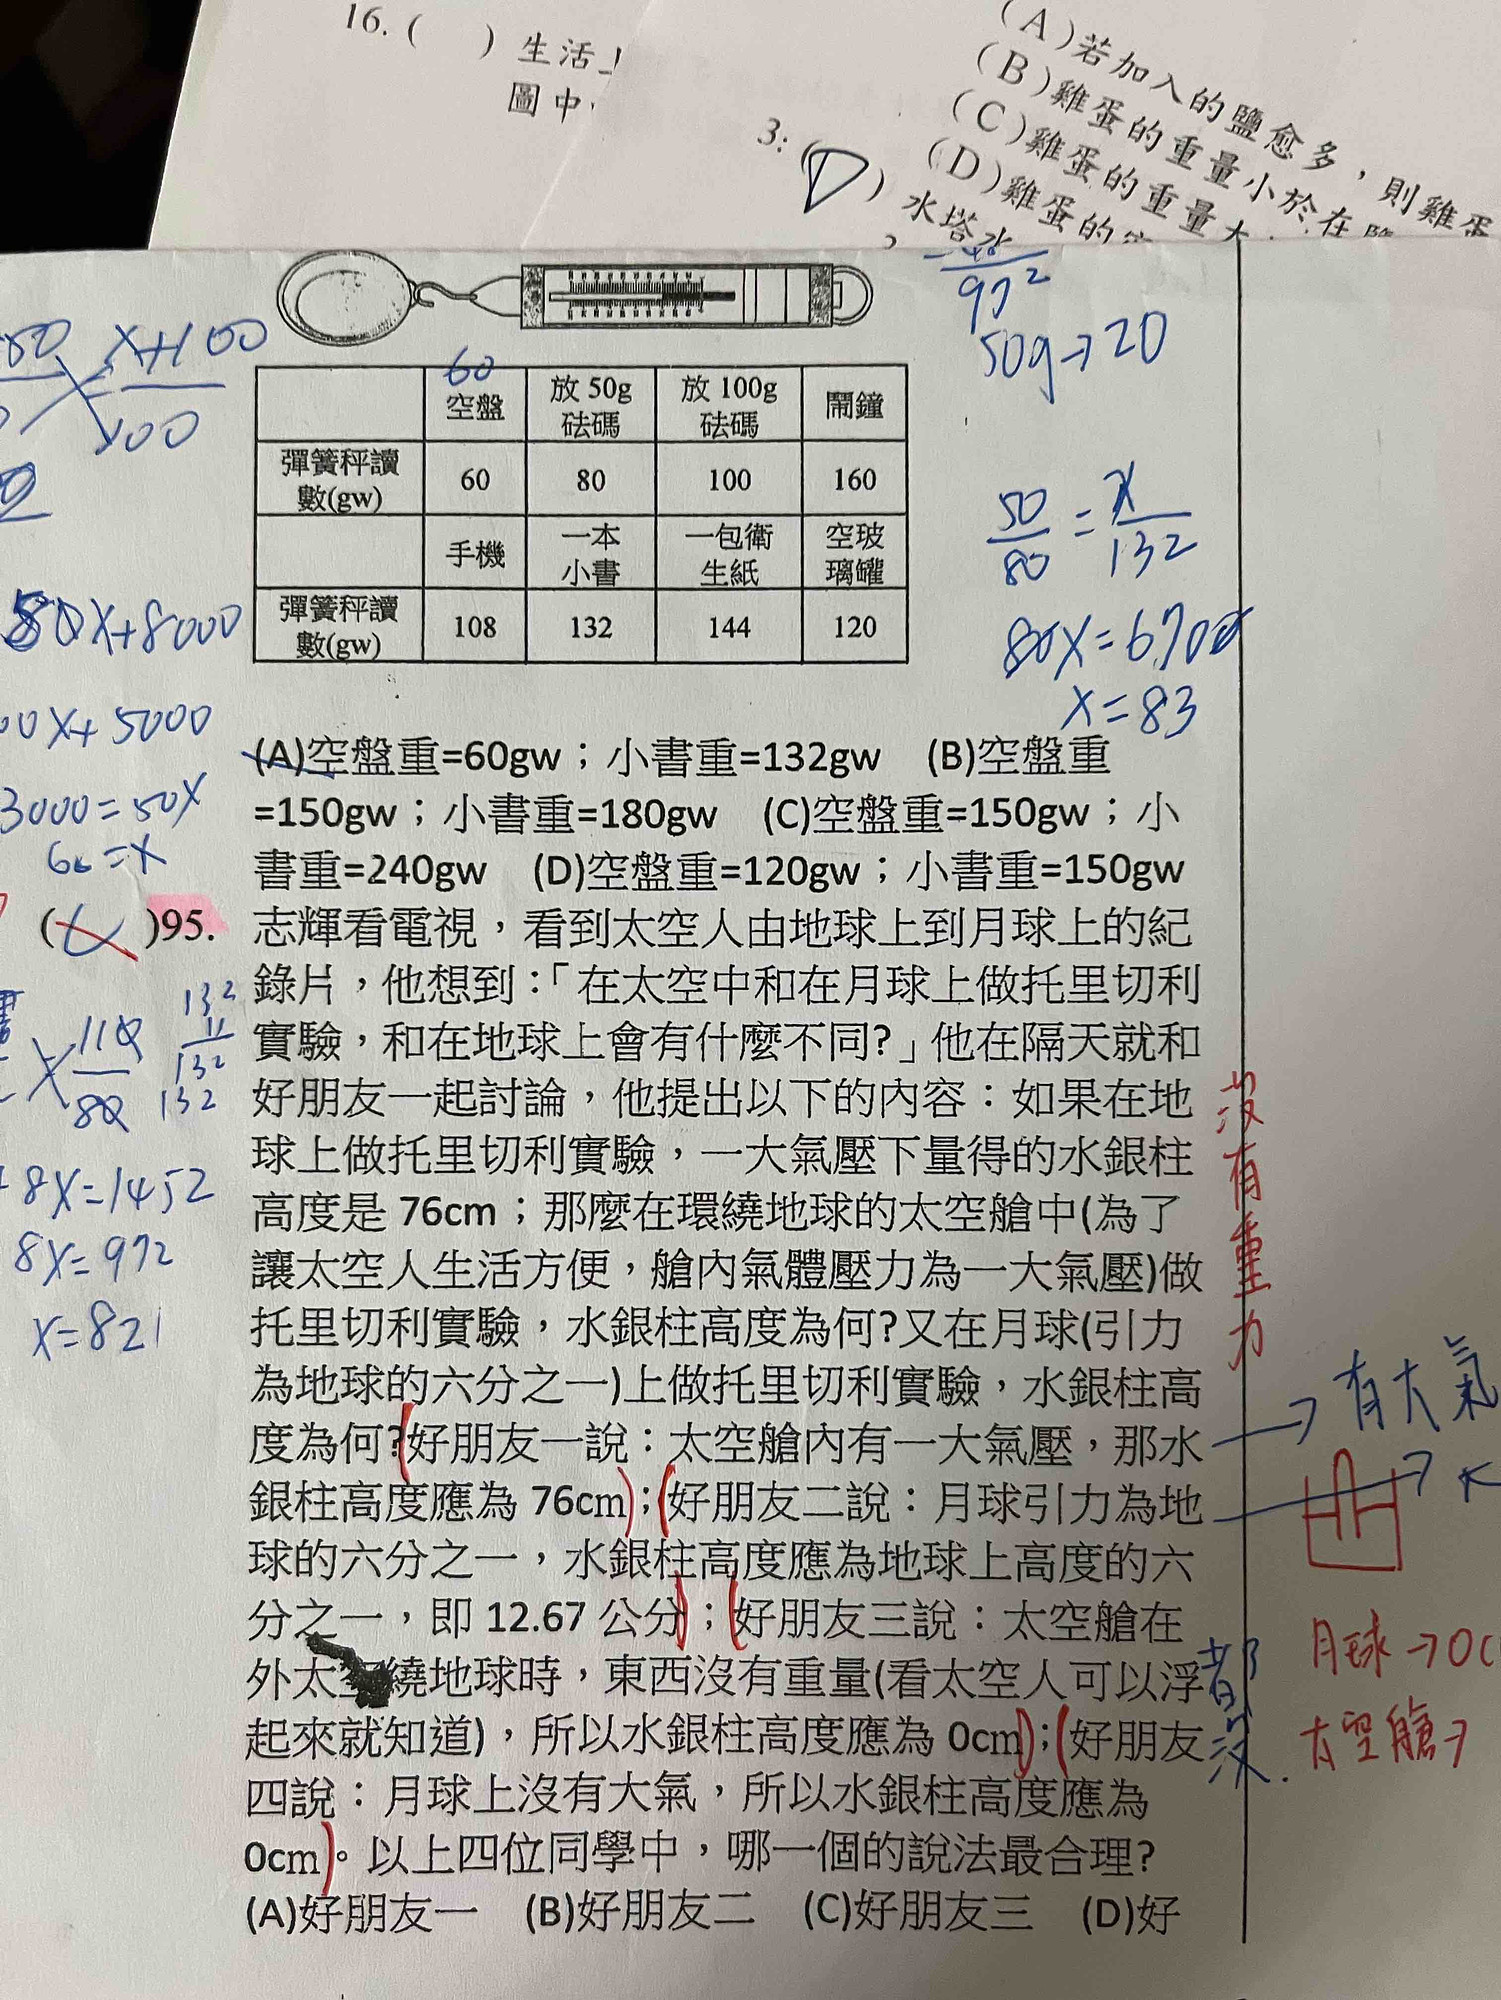 16. (　) 生活上
圖中
(A)若加入的鹽愈多，則雞蛋
(B)雞蛋的重量小於在鹽
(C)雞蛋的重量大
(D)雞蛋的密
3. (D) 水塔水
97²
50g→20
x+100
100
60
空盤 放 50g 砝碼 放 100g 砝碼 鬧鐘
彈簧秤讀數(gw) 60 80 100 160
手機 一本小書 一包衛生紙 空玻璃罐
彈簧秤讀數(gw) 108 132 144 120
50/80 = x/132
80x=6700
x=83
50x+8000
00x+5000
3000=50x
60=x
(A)空盤重=60gw；小書重=132gw　(B)空盤重
=150gw；小書重=180gw　(C)空盤重=150gw；小
書重=240gw　(D)空盤重=120gw；小書重=150gw
( )95. 志輝看電視，看到太空人由地球上到月球上的紀
錄片，他想到：「在太空中和在月球上做托里切利
實驗，和在地球上會有什麼不同?」他在隔天就和
好朋友一起討論，他提出以下的內容：如果在地
球上做托里切利實驗，一大氣壓下量得的水銀柱
高度是 76cm；那麼在環繞地球的太空艙中(為了
讓太空人生活方便，艙內氣體壓力為一大氣壓)做
托里切利實驗，水銀柱高度為何?又在月球(引力
為地球的六分之一)上做托里切利實驗，水銀柱高
度為何?好朋友一說：太空艙內有一大氣壓，那水
銀柱高度應為 76cm；好朋友二說：月球引力為地
球的六分之一，水銀柱高度應為地球上高度的六
分之一，即 12.67 公分；好朋友三說：太空艙在
外太空繞地球時，東西沒有重量(看太空人可以浮
起來就知道)，所以水銀柱高度應為 0cm；好朋友
四說：月球上沒有大氣，所以水銀柱高度應為
0cm。以上四位同學中，哪一個的說法最合理?
(A)好朋友一　(B)好朋友二　(C)好朋友三　(D)好
132
11
132
132
110
80
8x=1452
8x=972
x=821
沒有重力
→有大氣
都沒.
月球→0c
太空艙→